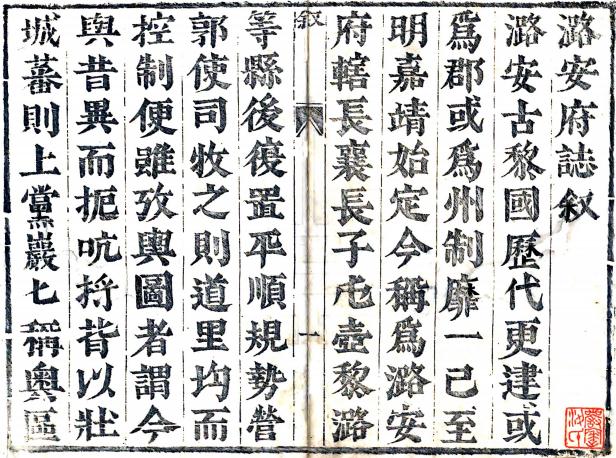 潞安府誌叙
潞安古黎國歷代更建或
爲郡或爲州制靡一己至
明嘉靖始定今稱爲潞安
府轄長襄長子屯壺黎潞
叙
一
等縣後復置平順規勢營
郭使司牧之則道里均而
控制便雖攷輿圖者謂今
與昔異而扼吭捋背以壯
城蕃則上黨巖七稱奥區